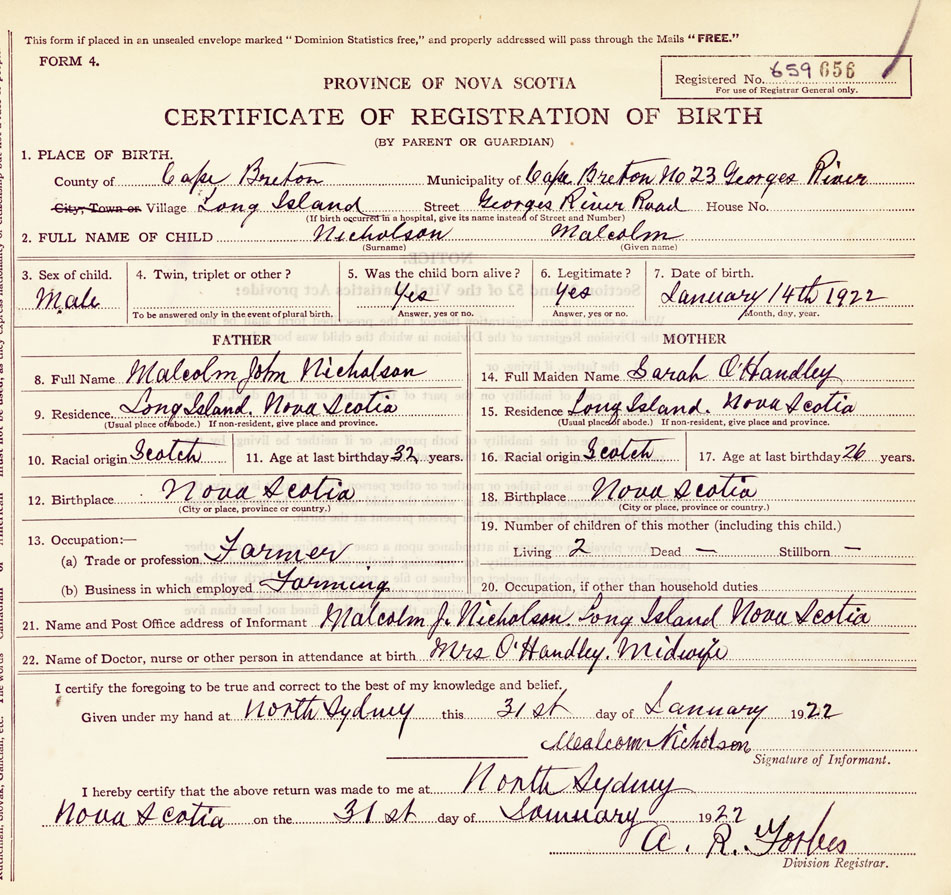 This form if placed in an unsealed envelope marked "Dominion Statistics free," and properly addressed will pass through the Mails "FREE."
FORM 4.
Registered No. 659 656
For use of Registrar General only.
PROVINCE OF NOVA SCOTIA
CERTIFICATE OF REGISTRATION OF BIRTH
(BY PARENT OR GUARDIAN)
1. PLACE OF BIRTH.
County of Cape Breton Municipality of Cape Breton No 23 Georges River
City, Town or Village Long Island Street Georges River Road House No.
(If birth occurred in a hospital, give its name instead of Street and Number)
2. FULL NAME OF CHILD Nicholson Malcolm
(Surname) (Given name)
3. Sex of child. 4. Twin, triplet or other? 5. Was the child born alive? 6. Legitimate? 7. Date of birth.
Male Yes Yes January 14th 1922
To be answered only in the event of plural birth. Answer, yes or no. Answer, yes or no. Month, day, year.
FATHER MOTHER
8. Full Name Malcolm John Nicholson 14. Full Maiden Name Sarah O'Handley
9. Residence Long Island. Nova Scotia 15. Residence Long Island. Nova Scotia
(Usual place of abode.) If non-resident, give place and province. (Usual place of abode.) If non-resident, give place and province.
10. Racial origin Scotch 11. Age at last birthday 32 years. 16. Racial origin Scotch 17. Age at last birthday 26 years.
12. Birthplace Nova Scotia 18. Birthplace Nova Scotia
(City or place, province or country.) (City or place, province or country.)
13. Occupation:— 19. Number of children of this mother (including this child.)
(a) Trade or profession Farmer Living 2 Dead — Stillborn —
(b) Business in which employed Farming 20. Occupation, if other than household duties
21. Name and Post Office address of Informant Malcolm J. Nicholson. Long Island Nova Scotia
22. Name of Doctor, nurse or other person in attendance at birth Mrs O'Handley. Midwife
I certify the foregoing to be true and correct to the best of my knowledge and belief.
Given under my hand at North Sydney this 31st day of January 1922
Malcom Nicholson
Signature of Informant.
I hereby certify that the above return was made to me at North Sydney
Nova Scotia on the 31st day of January 1922
A. R. Forbes
Division Registrar.